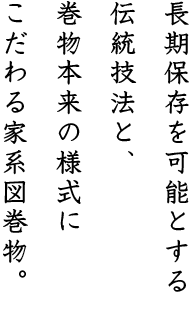 長期保存を可能とする
伝統技法と、
巻物本来の様式に
こだわる家系図巻物。